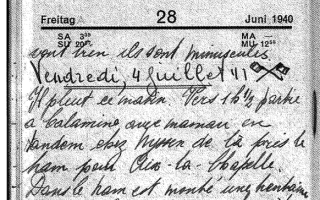 Freitag 28 Juni 1940
SA. 3 39 MA —
SU 20 21 MU 12 55
sont bien ils sont minuscules
Vendredi, 4 Juillet 41
Il pleut ce matin. Vers 1 h ½ partie
à Calamine avec maman en
tandem chez Nyssen de là près le
tram pour Aix-la-Chapelle
Dans le tram est monté une trentaine